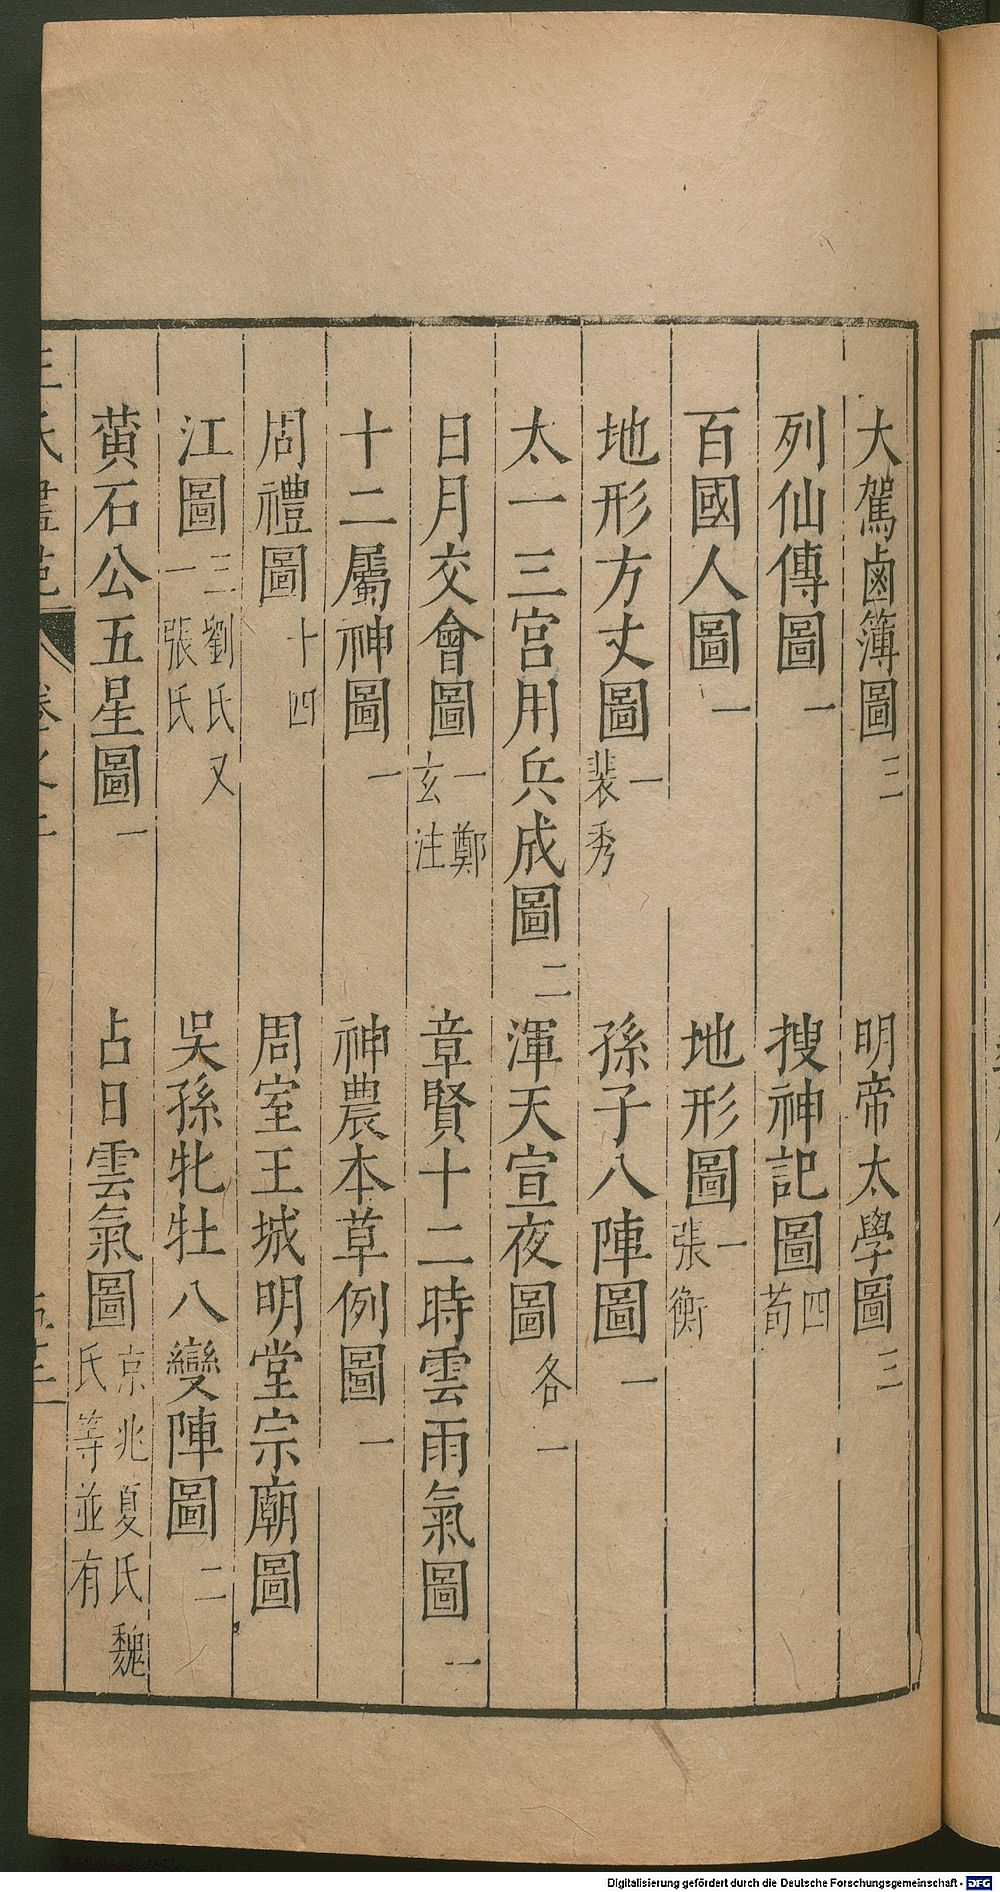 大駕鹵簿圖 三 明帝太學圖 三
列仙傳圖 一 搜神記圖 四荀
百國人圖 一 地形圖 一張衡
地形方丈圖 一裴秀 孫子八陣圖 一
太一三宮用兵成圖 二 渾天宣夜圖 各一
日月交會圖 一鄭玄注 章賢十二時雲雨氣圖 一
十二屬神圖 一 神農本草例圖 一
周禮圖 十四 周室王城明堂宗廟圖
江圖 三劉氏又一張氏 吳孫牝牡八變陣圖 二
黃石公五星圖 一 占日雲氣圖 京兆夏氏魏氏等並有
王氏畫苑 卷之二
Digitalisierung gefördert durch die Deutsche Forschungsgemeinschaft - DFG